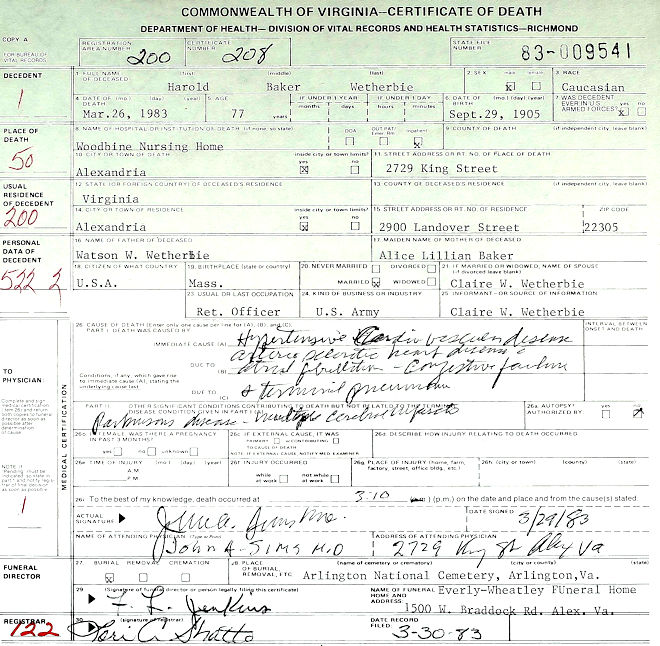 COMMONWEALTH OF VIRGINIA—CERTIFICATE OF DEATH
DEPARTMENT OF HEALTH— DIVISION OF VITAL RECORDS AND HEALTH STATISTICS—RICHMOND
COPY A
FOR BUREAU OF VITAL RECORDS
REGISTRATION AREA NUMBER 200 CERTIFICATE NUMBER 208 STATE FILE NUMBER 83-009541
DECEDENT
1
1. FULL NAME OF DECEASED (first) (middle) (last) 2. SEX male female 3. RACE
Harold Baker Wetherbie X Caucasian
4. DATE OF DEATH (mo.) (day) (year) 5. AGE IF UNDER 1 YEAR IF UNDER 1 DAY 6. DATE OF BIRTH (mo.) (day) (year) 7. WAS DECEDENT EVER IN U.S. ARMED FORCES? yes no
months days hours minutes
Mar.26, 1983 77 years Sept.29, 1905 X
PLACE OF DEATH
50
8. NAME OF HOSPITAL OR INSTITUTION OF DEATH (if none, so state) DOA OUT PAT/ Emer. Rm. Inpatient 9. COUNTY OF DEATH (if independent city, leave blank)
Woodbine Nursing Home X
10. CITY OR TOWN OF DEATH inside city or town limits? yes no 11. STREET ADDRESS OR RT. NO. OF PLACE OF DEATH
Alexandria X 2729 King Street
USUAL RESIDENCE OF DECEDENT
200
12. STATE (OR FOREIGN COUNTRY) OF DECEASED'S RESIDENCE 13. COUNTY OF DECEASED'S RESIDENCE (if independent city, leave blank)
Virginia
14. CITY OR TOWN OF RESIDENCE inside city or town limits? yes no 15. STREET ADDRESS OR RT. NO. OF RESIDENCE ZIP CODE
Alexandria X 2900 Landover Street 22305
PERSONAL DATA OF DECEDENT
522 2
16. NAME OF FATHER OF DECEASED 17. MAIDEN NAME OF MOTHER OF DECEASED
Watson W. Wetherbie Alice Lillian Baker
18. CITIZEN OF WHAT COUNTRY 19. BIRTHPLACE (state or country) 20. NEVER MARRIED DIVORCED 21. IF MARRIED OR WIDOWED, NAME OF SPOUSE (if divorced leave blank)
U.S.A. Mass. MARRIED X WIDOWED Claire W. Wetherbie
23. USUAL OR LAST OCCUPATION 24. KIND OF BUSINESS OR INDUSTRY 25. INFORMANT—OR SOURCE OF INFORMATION
Ret. Officer U.S. Army Claire W. Wetherbie
TO PHYSICIAN:
Complete and sign medical certification (item 26) and return both copies to funeral director as soon as possible after determination of cause
MEDICAL CERTIFICATION
26. CAUSE OF DEATH (Enter only one cause per line for (A), (B), and (C).) INTERVAL BETWEEN ONSET AND DEATH
PART I. DEATH WAS CAUSED BY:
IMMEDIATE CAUSE: (A) Hypertensive Cardiovascular disease
arteriosclerotic heart disease
Conditions, if any, which gave rise to immediate cause (A), stating the underlying cause last
DUE TO (B) atrial fibrillation - Congestive failure
DUE TO (C) & terminal pneumonia
PART II. OTHER SIGNIFICANT CONDITIONS CONTRIBUTING TO DEATH BUT NOT RELATED TO THE TERMINAL DISEASE CONDITION GIVEN IN PART I (A) 26a. AUTOPSY? yes no
AUTHORIZED BY:
Parkinsons disease - multiple cerebral infarcts
26b. IF FEMALE WAS THERE A PREGNANCY IN PAST 3 MONTHS? 26c. IF EXTERNAL CAUSE, IT WAS 26d. DESCRIBE HOW INJURY RELATING TO DEATH OCCURRED
PRIMARY or CONTRIBUTING
TO CAUSE OF DEATH
yes no unknown NOTE: IF EXTERNAL CAUSE, NOTIFY MED EXAMINER
NOTE If "Pending" must be indicated, so state in part I and notify registrar of final decision as soon as possible
1
26e. TIME OF INJURY (mo.) (day) (year) 26f. INJURY OCCURRED 26g. PLACE OF INJURY (home, farm, factory, street, office bldg., etc.) 26h. (city or town) (county) (state)
A.M. P.M. while at work not while at work
26i. To the best of my knowledge, death occurred at 3:10 (p.m.) on the date and place and from the cause(s) stated
ACTUAL SIGNATURE John A. Sims DATE SIGNED 3/29/83
NAME OF ATTENDING PHYSICIAN (Type or Print) ADDRESS OF ATTENDING PHYSICIAN
John A. SIMS M.D 2729 King St Alex Va
FUNERAL DIRECTOR
27. BURIAL REMOVAL CREMATION 28. PLACE OF BURIAL, REMOVAL, ETC (name of cemetery or crematory) (city or county) (state)
X Arlington National Cemetery, Arlington,Va.
29. (Signature of funeral director or person legally filing this certificate) NAME OF FUNERAL HOME AND ADDRESS: Everly-Wheatley FUneral Home
F. L. Jenkins 1500 W. Braddock Rd. Alex. Va.
REGISTRAR 30. (signature of registrar) DATE RECORD FILED:
122 3-30-83